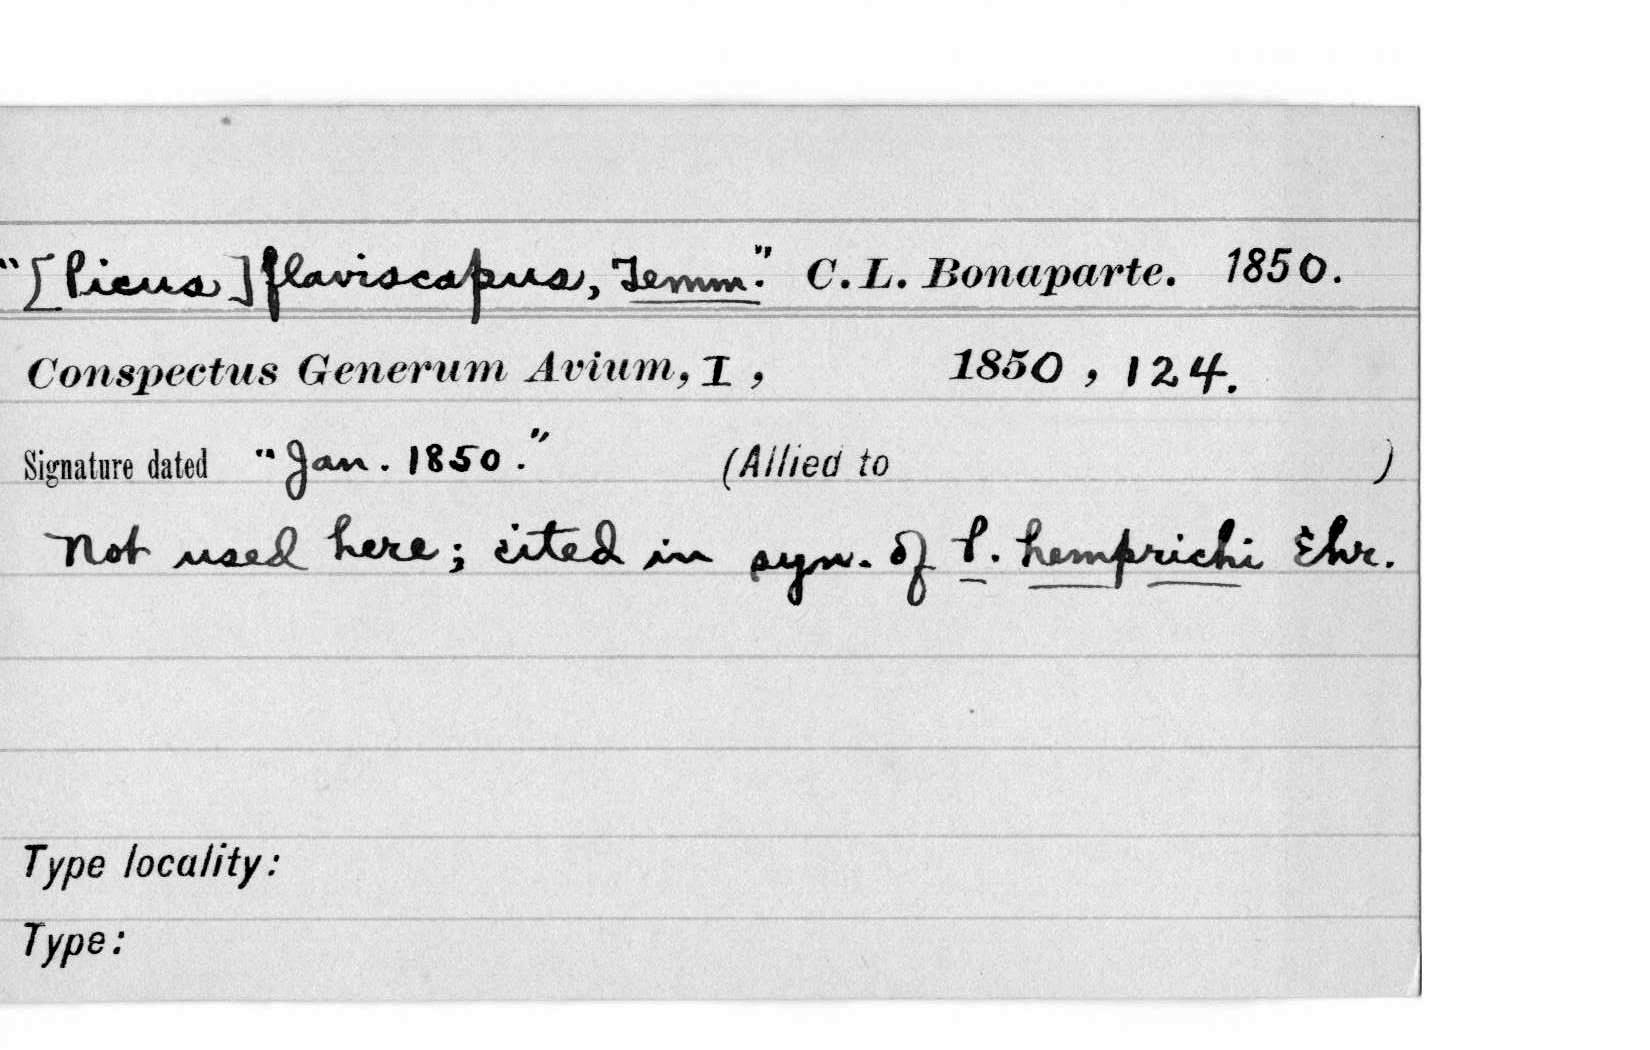 "[Picus] flaviscapus, Temm." C. L. Bonaparte. 1850.
Conspectus Generum Avium, I, 1850, 124.
Signature dated "Jan. 1850." (Allied to )
Not used here; cited in syn. of P. hemprichi Ehr.
Type locality:
Type: